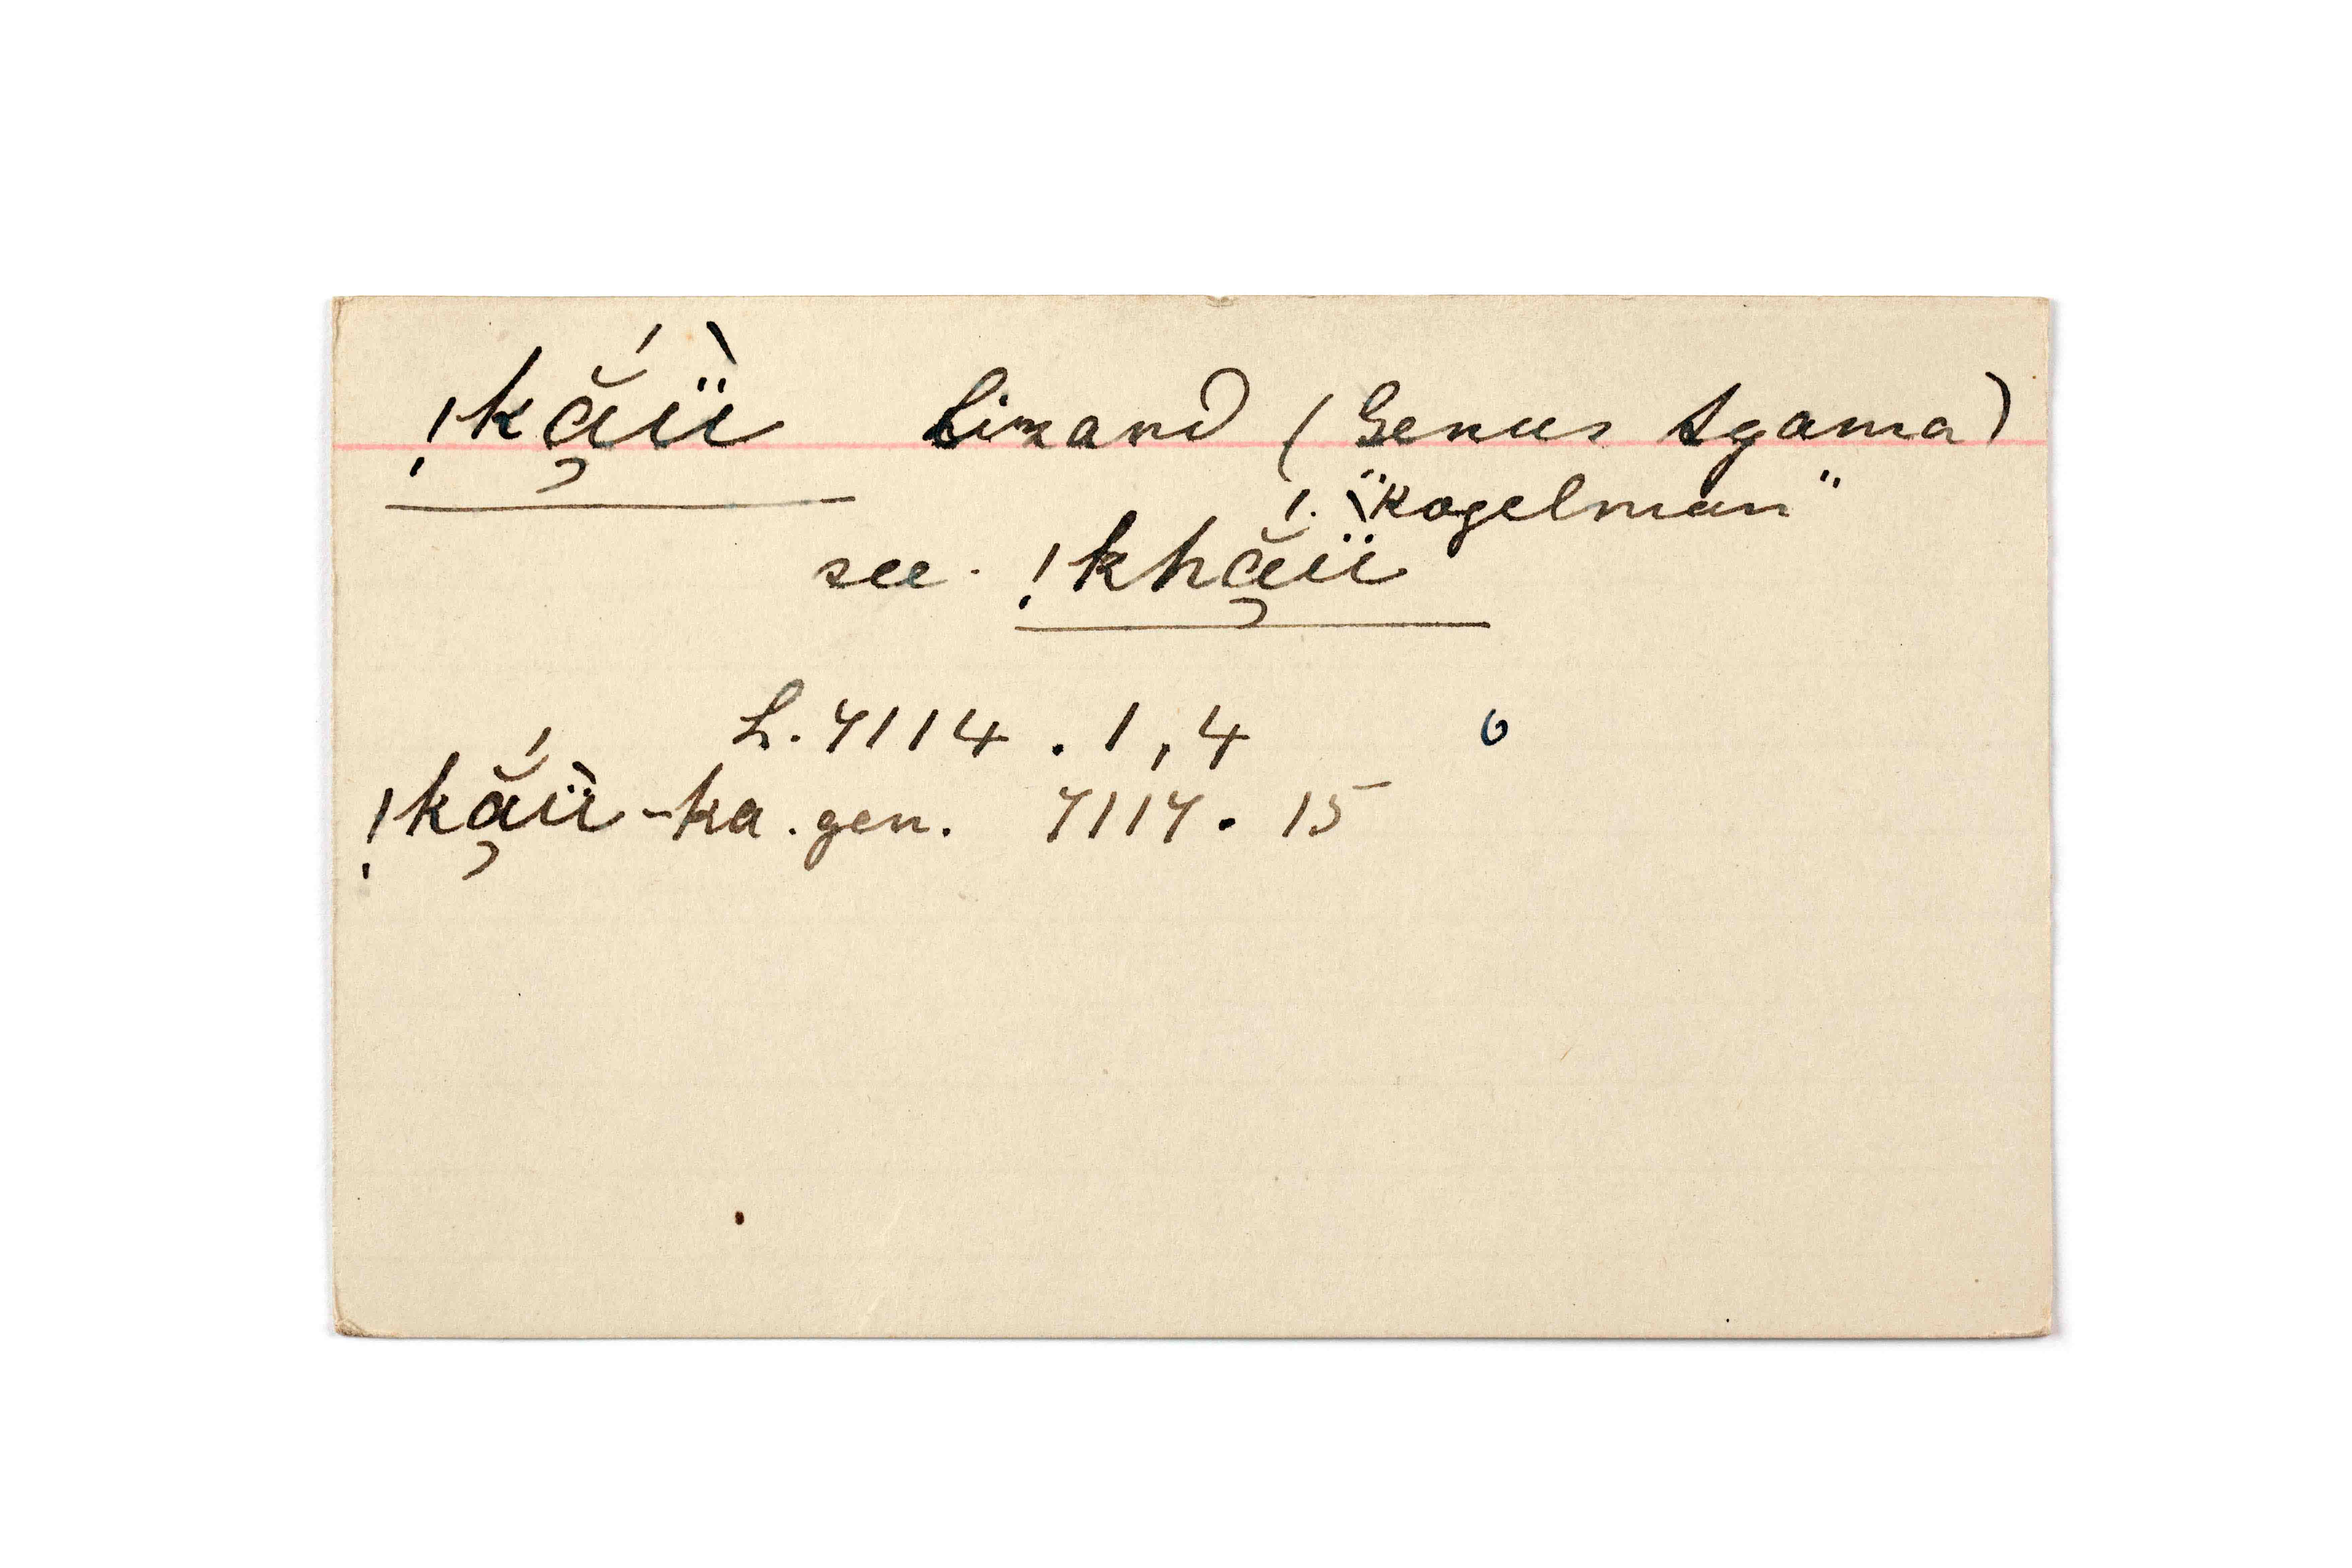 !kắ̦ïì Lizard (Genus Agama)
"Kogelman"
see. !khắ̦ïì
L. 7114 . 1, 4 6
!kắ̦ïì -ka . gen. 7117 . 15